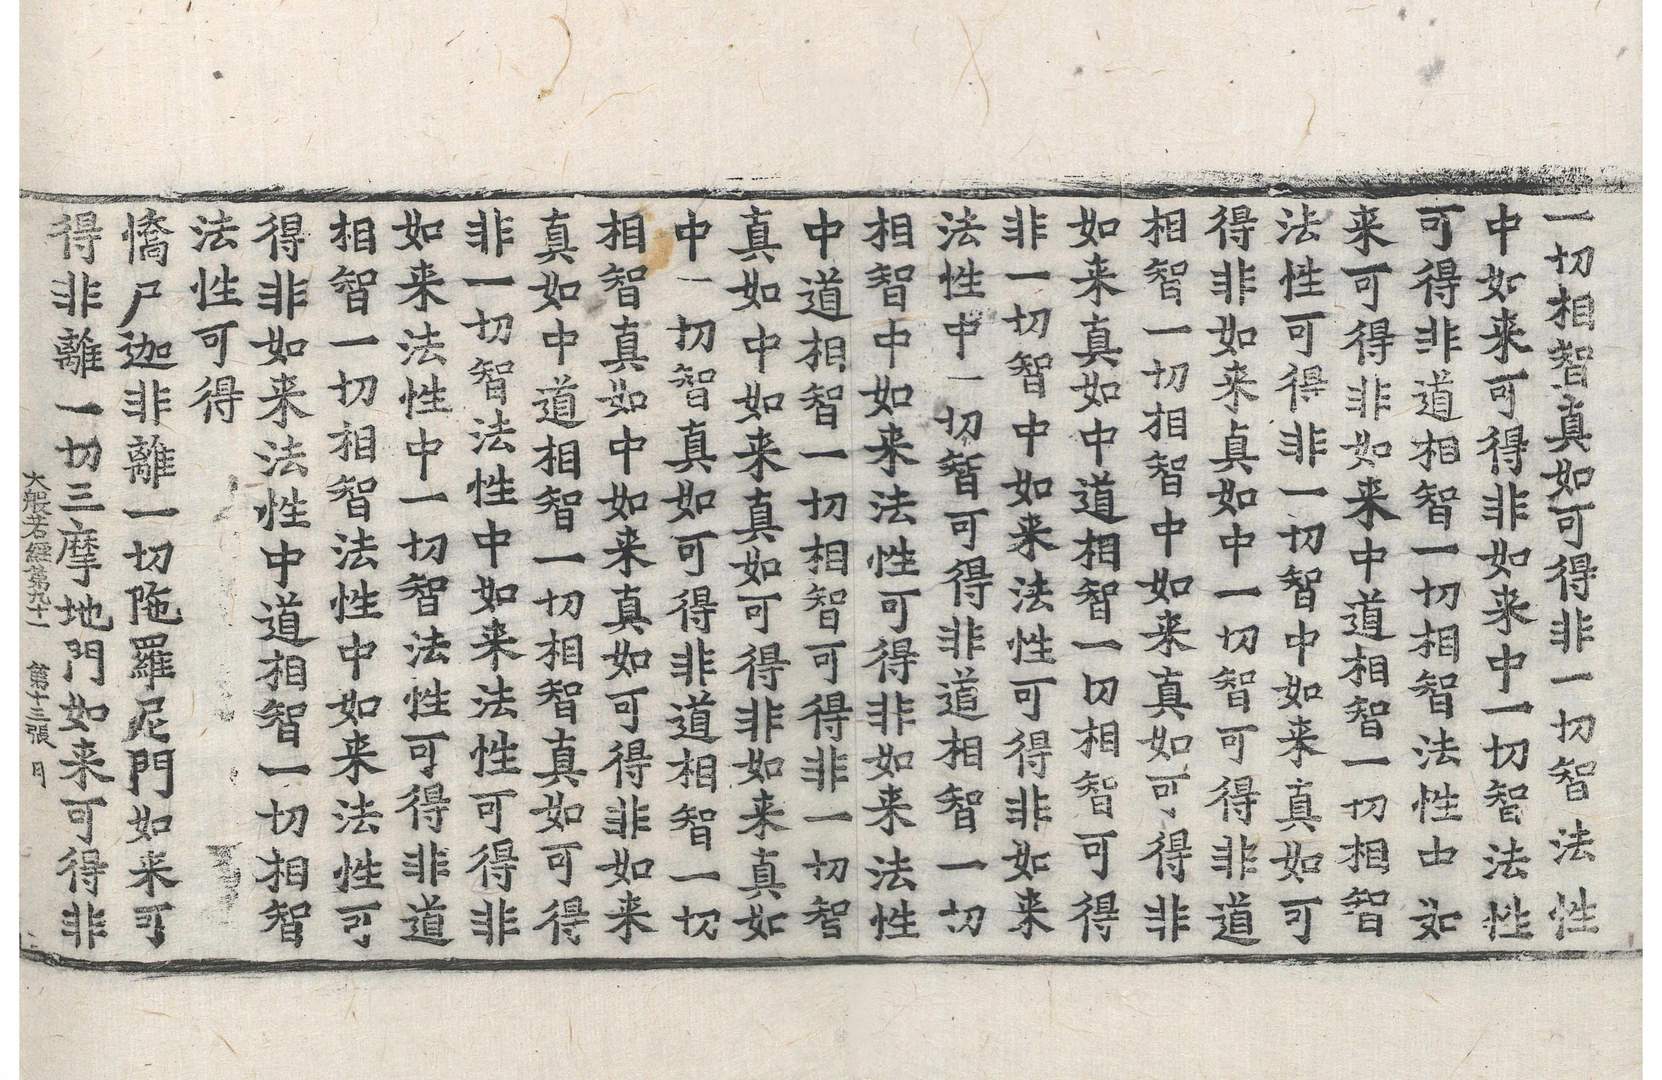 一切相智真如可得非一切智法性
中如来可得非如来中一切智法性
可得非道相智一切相智法性中如
来可得非如来中道相智一切相智
法性可得非一切智中如来真如可
得非如来真如中一切智可得非道
相智一切相智中如来真如可得非
如来真如中道相智一切相智可得
非一切智中如来法性可得非如来
法性中一切智可得非道相智一切
相智中如来法性可得非如来法性
中道相智一切相智可得非一切智
真如中如来真如可得非如来真如
中一切智真如可得非道相智一切
相智真如中如来真如可得非如来
真如中道相智一切相智真如可得
非一切智法性中如来法性可得非
如来法性中一切智法性可得非道
相智一切相智法性中如来法性可
得非如来法性中道相智一切相智
法性可得
憍尸迦非離一切陁羅尼門如来可
得非離一切三摩地門如来可得非
大般若經第九十一 第十三張 月